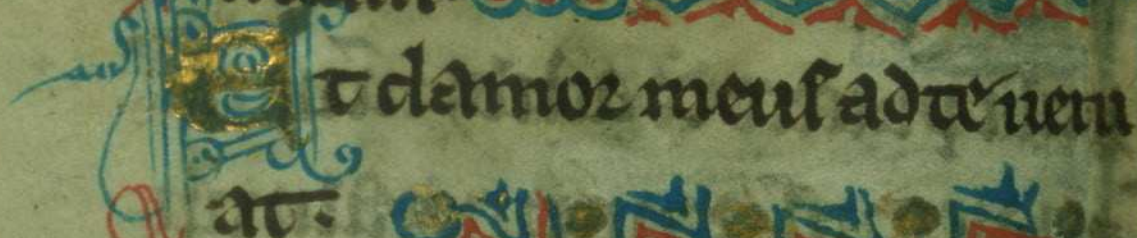 Et clamor meus ad te ueni
at.